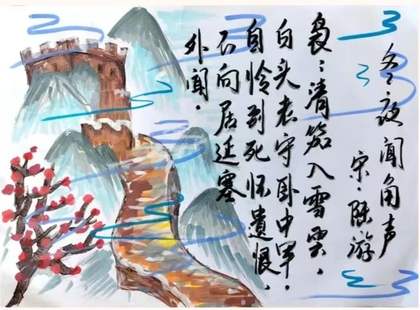 冬夜闻角声
宋·陆游
袅々清笳入雪云，
白头老守卧中军，
自怜到死怀遗恨，
不向居延塞
外闻。